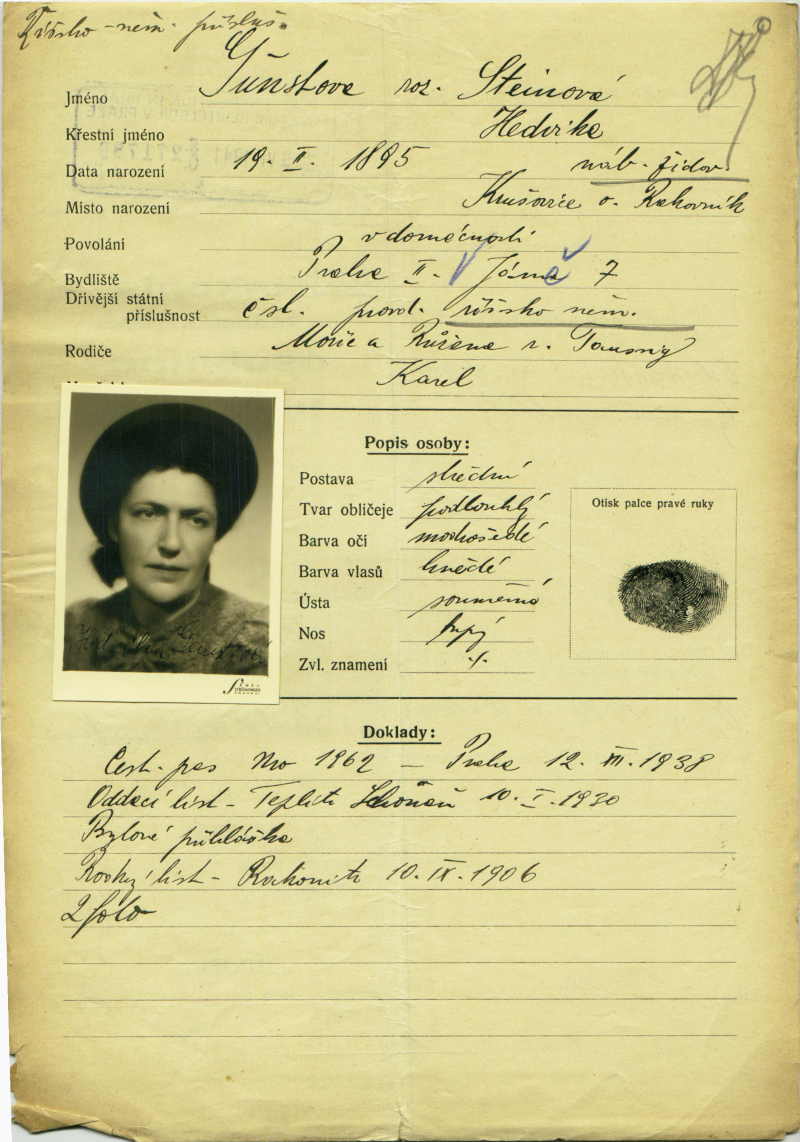 Říšsko-něm. přísluš.
Jméno Günstova roz. Steinová
Křestní jméno Hedvika
Data narození 19. II. 1895 náb. židov.
Místo narození Krušovice o. Rakovník
Povolání v domácnosti
Bydliště Praha II. Jámě 7
Dřívější státní
příslušnost čsl. prod. říšsko něm.
Rodiče Mořic a Růžena r. Taussig
Karel
Popis osoby:
Postava střední
Tvar obličeje podlouhlý
Barva očí modrošedé
Barva vlasů hnědé
Ústa souměrná
Nos tupý
Zvl. znamení ./.
Otisk palce pravé ruky
Doklady:
Cest. pas No 1962 — Praha 12. VII. 1938
Oddací list – Teplitz Schönau 10. I. 1930
Bytové přihláška
Rodný list – Rakonitz 10. IX. 1906
2 foto